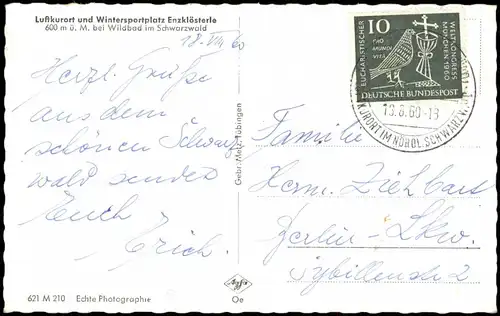 Luftkurort und Wintersportplatz Enzklösterle
600 m ü. M. bei Wildbad im Schwarzwald
18. VIII 60
Herzl. Grüße
aus dem
schönen Schwarz
wald sendet
Euch
Erich.
Gebr. Metz, Tübingen
621 M 210 Echte Photographie
Agfa
Oe
10
EUCHARISTISCHER
WELTKONGRESS
MÜNCHEN 1960
PRO
MUNDI
VITA
DEUTSCHE BUNDESPOST
-18
KURORT IM NÖRDL. SCHWARZW.
Familie
Herm. Ziehbart
Berlin-Lkw.
Sybillenstr 2